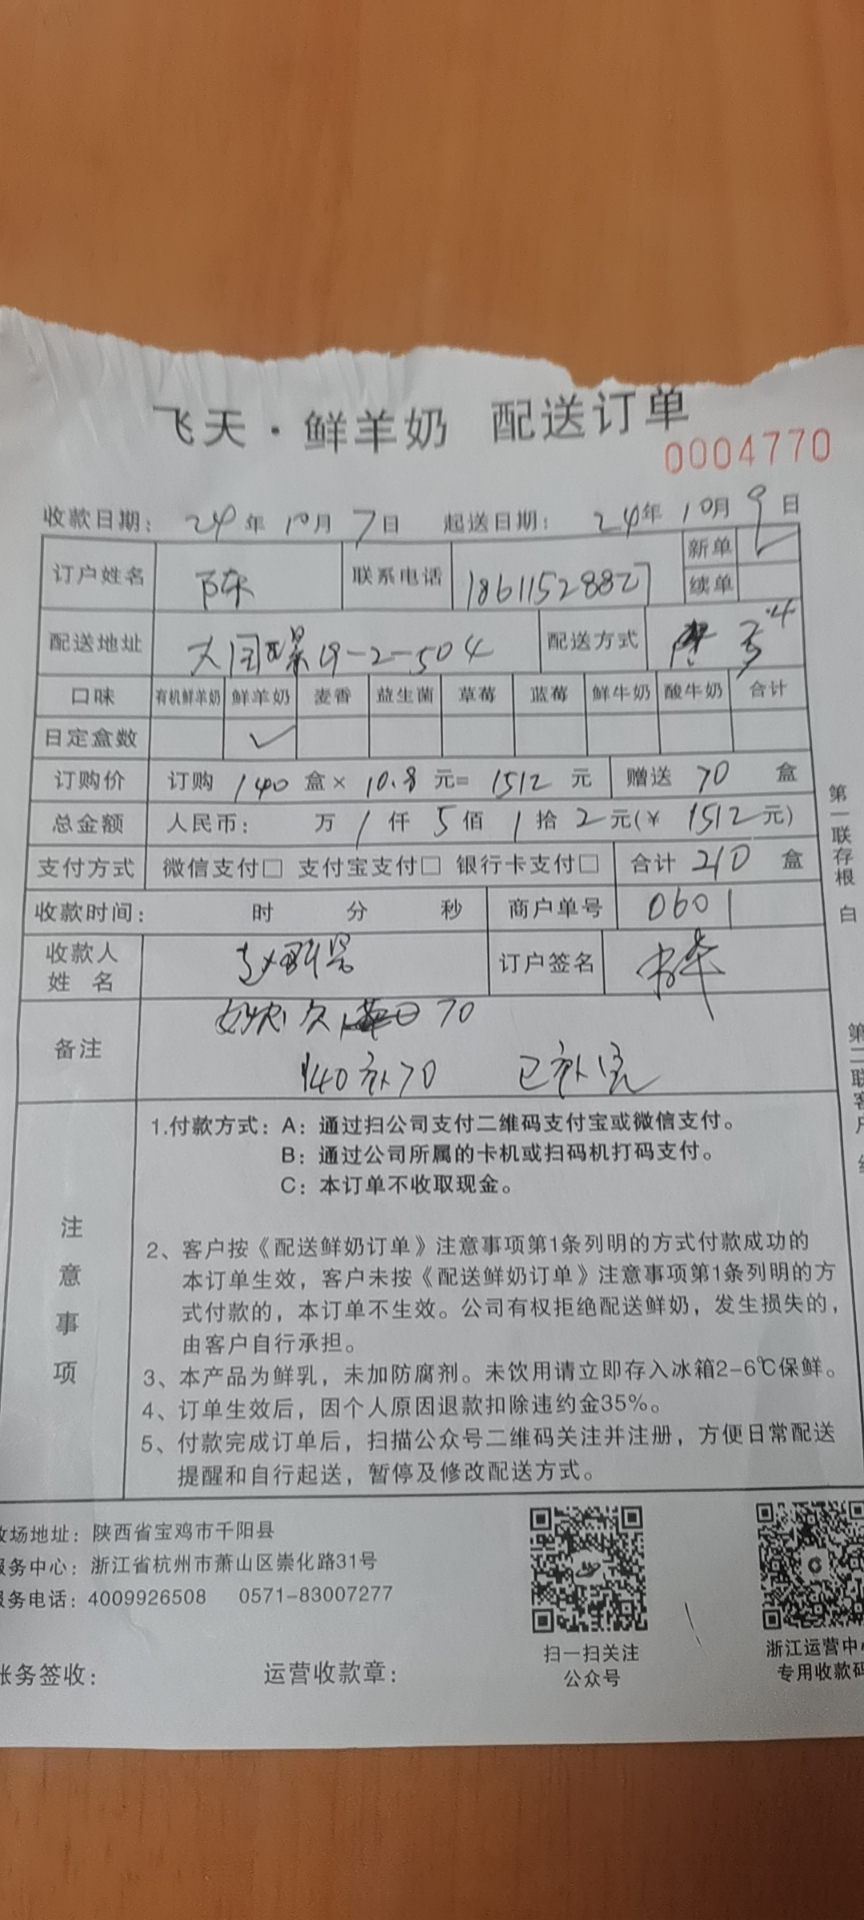 飞天·鲜羊奶 配送订单
0004770
收款日期: 24年10月7日 起送日期: 24年10月9日
订户姓名 陈 联系电话 18611528827 新单 ✓
续单
配送地址 19-2-504 配送方式
口味 有机鲜羊奶 鲜羊奶 麦香 益生菌 草莓 蓝莓 鲜牛奶 酸牛奶 合计
日定盒数 ✓
订购价 订购 140 盒× 10.8 元= 1512 元 赠送 70 盒
总金额 人民币: 万 1 仟 5 佰 1 拾 2 元(¥ 1512 元)
支付方式 微信支付□ 支付宝支付□ 银行卡支付□ 合计 210 盒
收款时间: 时 分 秒 商户单号 0601
收款人姓名 订户签名
备注 70
140补70 已补完
注意事项
1.付款方式: A: 通过扫公司支付二维码支付宝或微信支付。
B: 通过公司所属的卡机或扫码机打码支付。
C: 本订单不收取现金。
2、客户按《配送鲜奶订单》注意事项第1条列明的方式付款成功的
本订单生效，客户未按《配送鲜奶订单》注意事项第1条列明的方
式付款的，本订单不生效。公司有权拒绝配送鲜奶，发生损失的，
由客户自行承担。
3、本产品为鲜乳，未加防腐剂。未饮用请立即存入冰箱2-6℃保鲜。
4、订单生效后，因个人原因退款扣除违约金35%。
5、付款完成订单后，扫描公众号二维码关注并注册，方便日常配送
提醒和自行起送，暂停及修改配送方式。
第一联存根 白
第二联客户
牧场地址: 陕西省宝鸡市千阳县
服务中心: 浙江省杭州市萧山区崇化路31号
服务电话: 4009926508 0571-83007277
扫一扫关注
公众号
浙江运营中心
专用收款码
账务签收: 运营收款章: